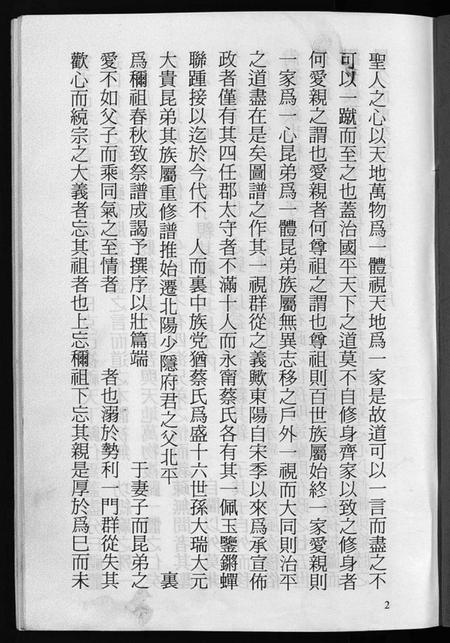 聖人之心以天地萬物爲一體視天地爲一家是故道可以一言而盡之不
可以一蹴而至之也蓋治國平天下之道莫不自修身齊家以致之修身者
何愛親之謂也愛親者何尊祖之謂也尊祖則百世族屬始終一家愛親則
一家爲一心昆弟爲一體昆弟族屬無異志移之戶外一視而大同則治平
之道盡在是矣圖譜之作其一視群從之義歟東陽自宋季以來爲承宣佈
政者僅有其四任郡太守者不滿十人而永甯蔡氏各有其一佩玉鑒鏘蟬
聯踵接以迄於今代不　人而裏中族党猶蔡氏爲盛十六世孫大瑞大元
大貴昆弟其族屬重修譜推始遷北陽少隱府君之父北平　　　　　裏
爲禰祖春秋致祭譜成謁予撰序以壯篇端　　　　　于妻子而昆弟之
愛不如父子而乘同氣之至情者　　　　者也溺於勢利一門群從失其
歡心而綂宗之大義者忘其祖者也上忘禰祖下忘其親是厚於爲巳而未
2